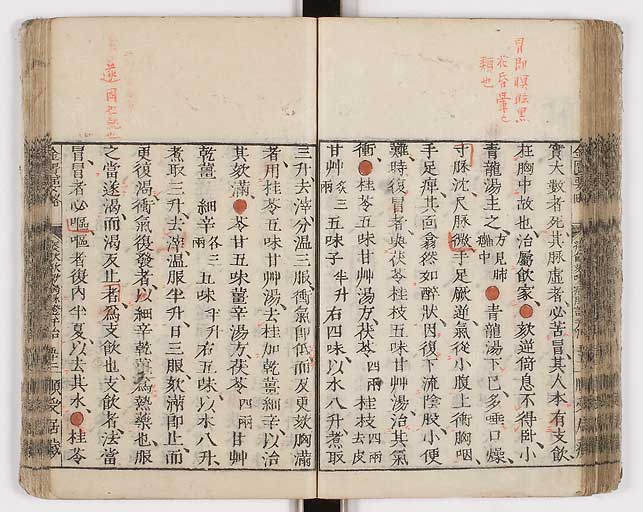 冐即瞑眩黑
花昏暈之
類也
實大數者死其脉虛者必苦冒其人本有支飲
在胸中故也治屬飲家咳逆倚息不得臥小
青龍湯主之方見肺癰中青龍湯下已多唾口燥
寸脉沈尺脉微手足厥逆氣從小腹上衝胸咽
手足痺其面翕然如醉狀因復下流陰股小便
難時復冒者與茯苓桂枝五味甘艸湯治其氣
衝桂苓五味甘艸湯方茯苓四兩桂枝四兩去皮
甘艸炙三兩五味子半升右四味以水八升煮取
三升去滓分溫三服衝氣即低而反更咳胸滿
者用桂苓五味甘艸湯去桂加乾薑細辛以治
其咳滿苓甘五味薑辛湯方茯苓四兩甘艸
乾薑細辛各三兩五味半升右五味以水八升
煮取三升去滓溫服半升日三服咳滿即止而
更復渴衝氣復發者以細辛乾薑爲熱藥也服
之當遂渴而渴反止者爲支飲也支飲者法當
冒冒者必嘔嘔者復內半夏以去其水桂苓